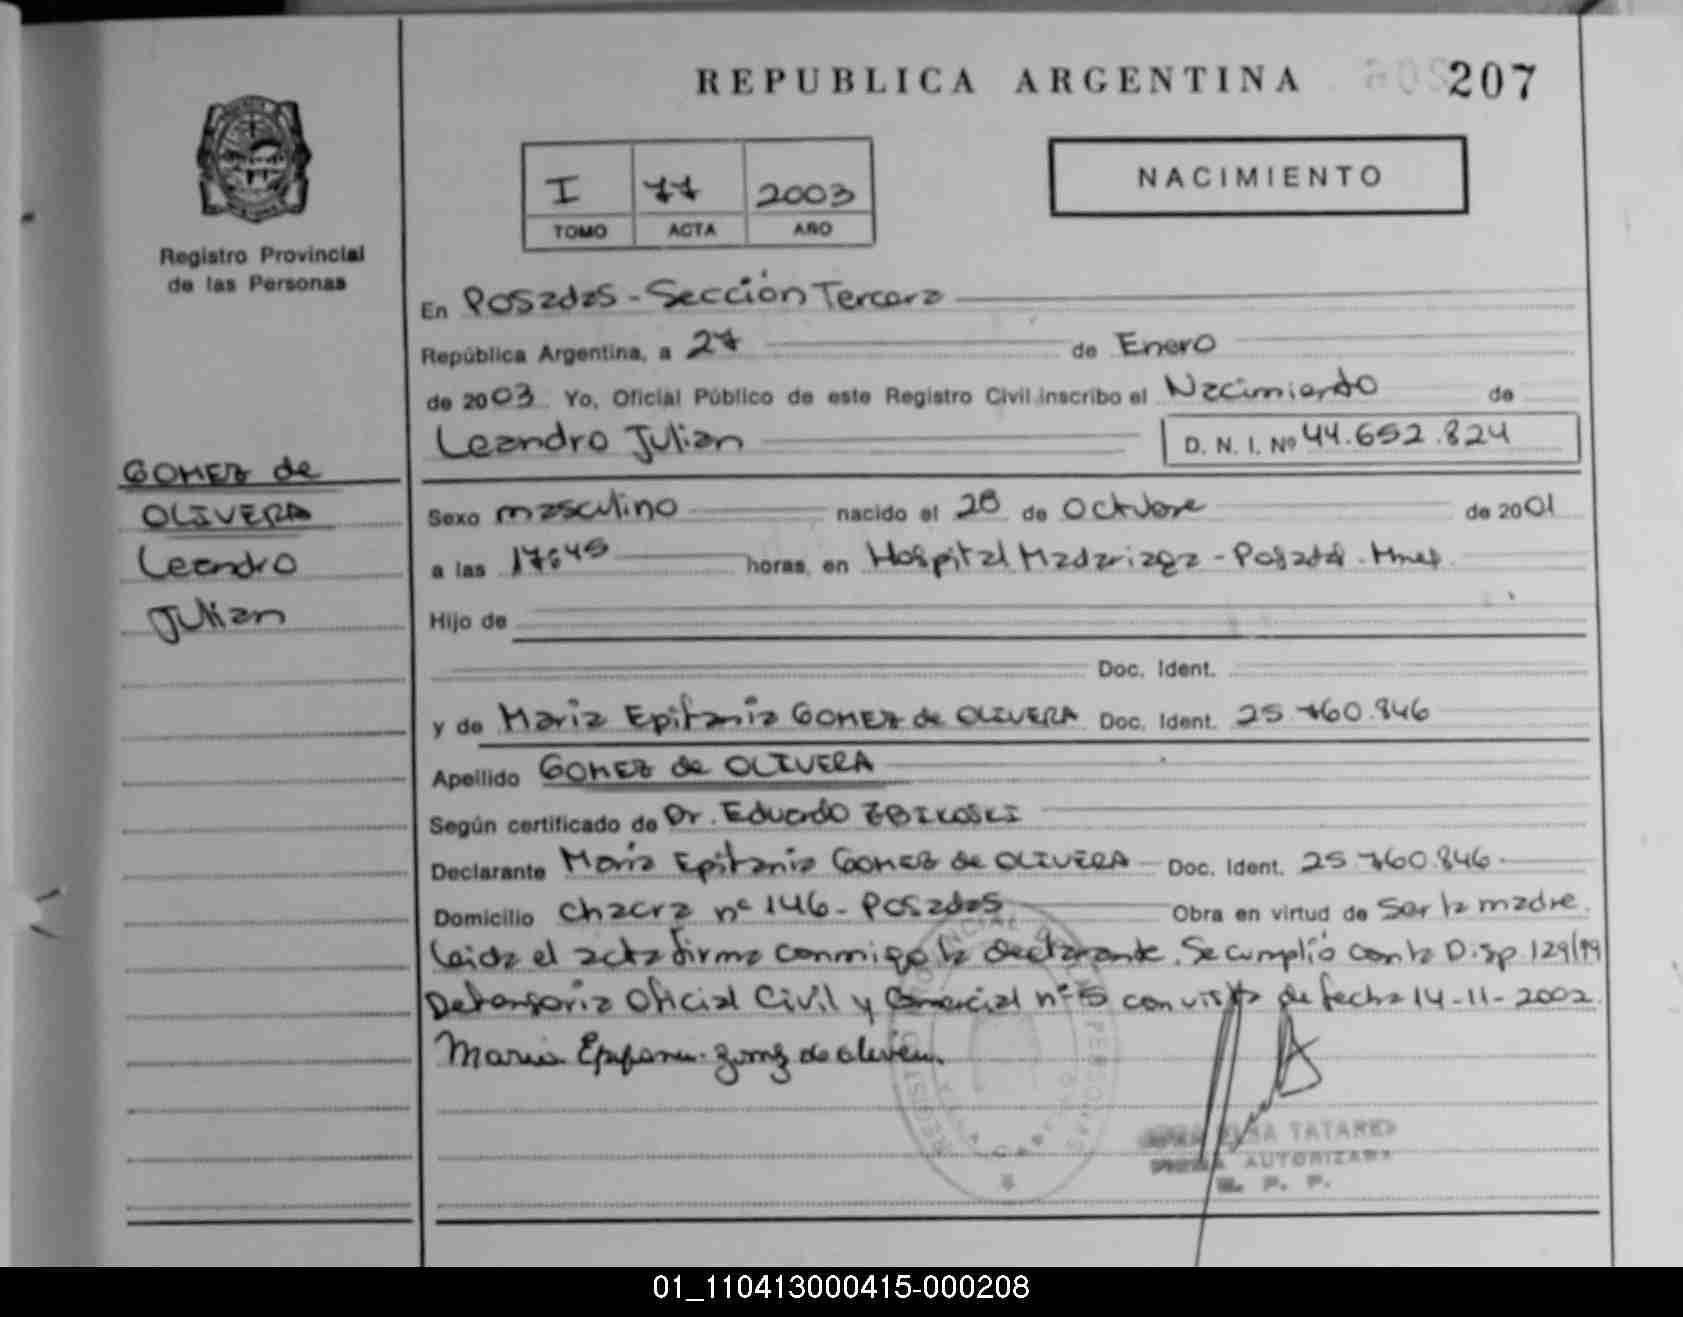 REPUBLICA ARGENTINA 207
I 77 2003
TOMO ACTA AÑO
NACIMIENTO
Registro Provincial
de las Personas
GOMEZ de
OLIVERA
Leandro
Julian
En Posadas - Sección Tercera
República Argentina, a 27 de Enero
de 2003 Yo, Oficial Público de este Registro Civil inscribo el Nacimiento de
Leandro Julian D. N. I. Nº 44.652.824
Sexo masculino nacido el 28 de Octubre de 2001
a las 17:45 horas, en Hospital Madariaga - Posadas - Mnes
Hijo de
Doc. Ident.
y de Maria Epifania GOMEZ de OLIVERA Doc. Ident. 25.760.846
Apellido GOMEZ de OLIVERA
Según certificado de Dr. Eduardo ZBIKOSKI
Declarante Maria Epifania GOMEZ de OLIVERA Doc. Ident. 25.760.846
Domicilio Chacra nº 146 - Posadas Obra en virtud de Ser la madre.
Leida el acta firma conmigo la declarante. Se cumplió con la Disp. 129/99
Defensoria Oficial Civil y Comercial nº 5 con vista de fecha 14-11-2002.
Maria Epifania gomez de olivera.
TATAREN
AUTORIZADA
R. P. P.
01_110413000415-000208